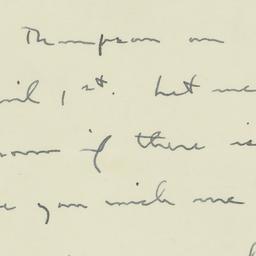 Thompson on
ril 1st. Let me
now if there is
e you wish me